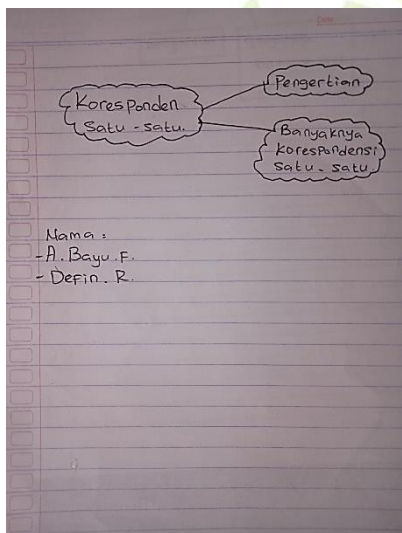 Date
Koresponden
Satu - satu.
Pengertian
Banyaknya
Korespondensi
Satu - satu
Nama :
- A. Bayu. F.
- Defin. R.